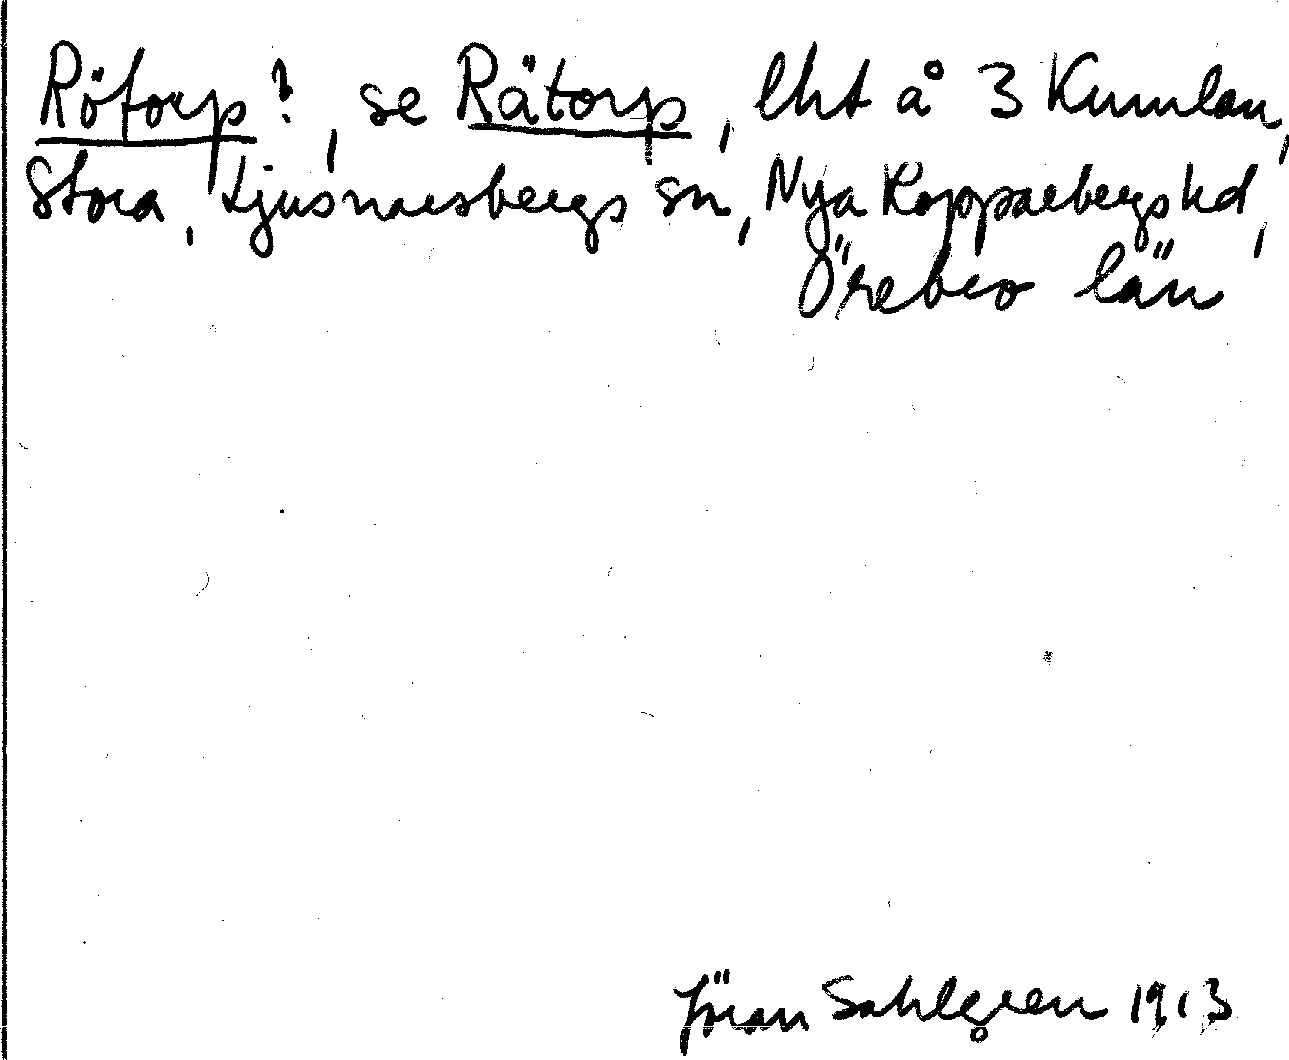 Röforp?, se Rätorp, lht å 3 Kumlan,
Stora, Ljusnarsbergs sn, Nya Kopparbergs hd,
Örebro län
Jöran Sahlgren 1913